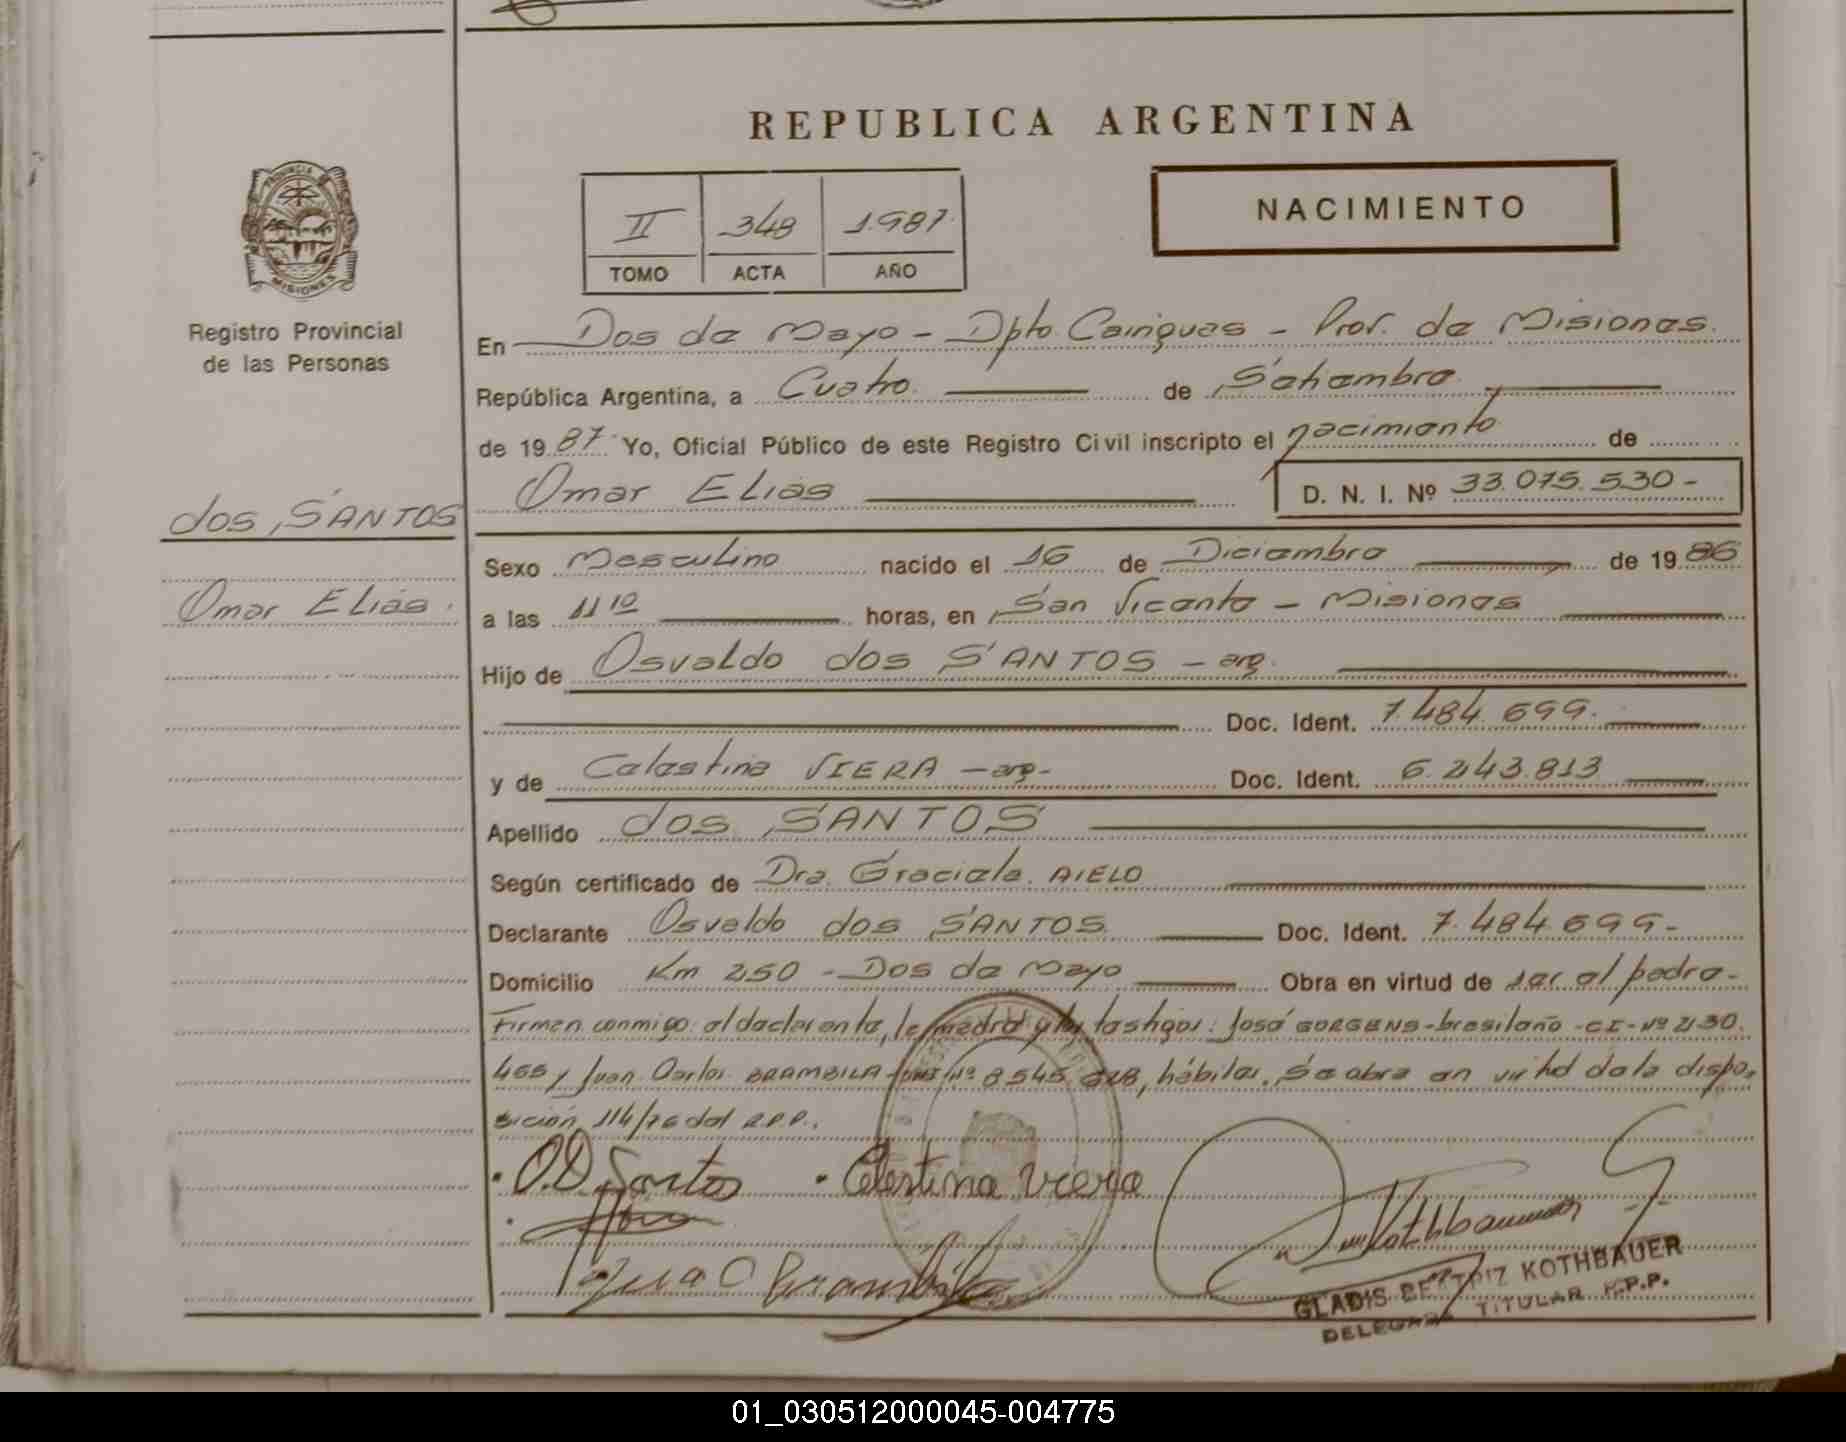 REPUBLICA ARGENTINA
NACIMIENTO
II 348 1.987.
TOMO ACTA AÑO
PROVINCIA
MISIONES
Registro Provincial
de las Personas
dos SANTOS
Omar Elias.
En Dos de Mayo - Dpto Cainguas - Prov. de Misiones.
República Argentina, a Cuatro de Setiembre
de 19 87 Yo, Oficial Público de este Registro Civil inscripto el nacimiento de
Omar Elias D. N. I. Nº 33.075.530-
Sexo Masculino nacido el 16 de Diciembre de 19 86
a las 11 10 horas, en San Vicente - Misiones
Hijo de Osvaldo dos SANTOS - arg.
Doc. Ident. 7.484.699.
y de Celestina VIERA - arg- Doc. Ident. 6.243.813
Apellido dos SANTOS
Según certificado de Dra. Graciela AIELO
Declarante Osvaldo dos SANTOS Doc. Ident. 7.484.699-
Domicilio Km 250 - Dos de Mayo Obra en virtud de ser el padre-
Firman conmigo el declarante, la madre y los testigos: José GORGENS - brasilaño - CI - Nº 2130.
465 y Juan Carlos BRAMBILA - Nº 8.545. hábiles. Se abre en virtud de la dispo-
sición 114/76 del R.P.P..
O.D. Santos Celestina Viera
Juan C Brambila
Kothbauer
GLADIS BEATRIZ KOTHBAUER
DELEGADA TITULAR R.P.P.
01_030512000045-004775